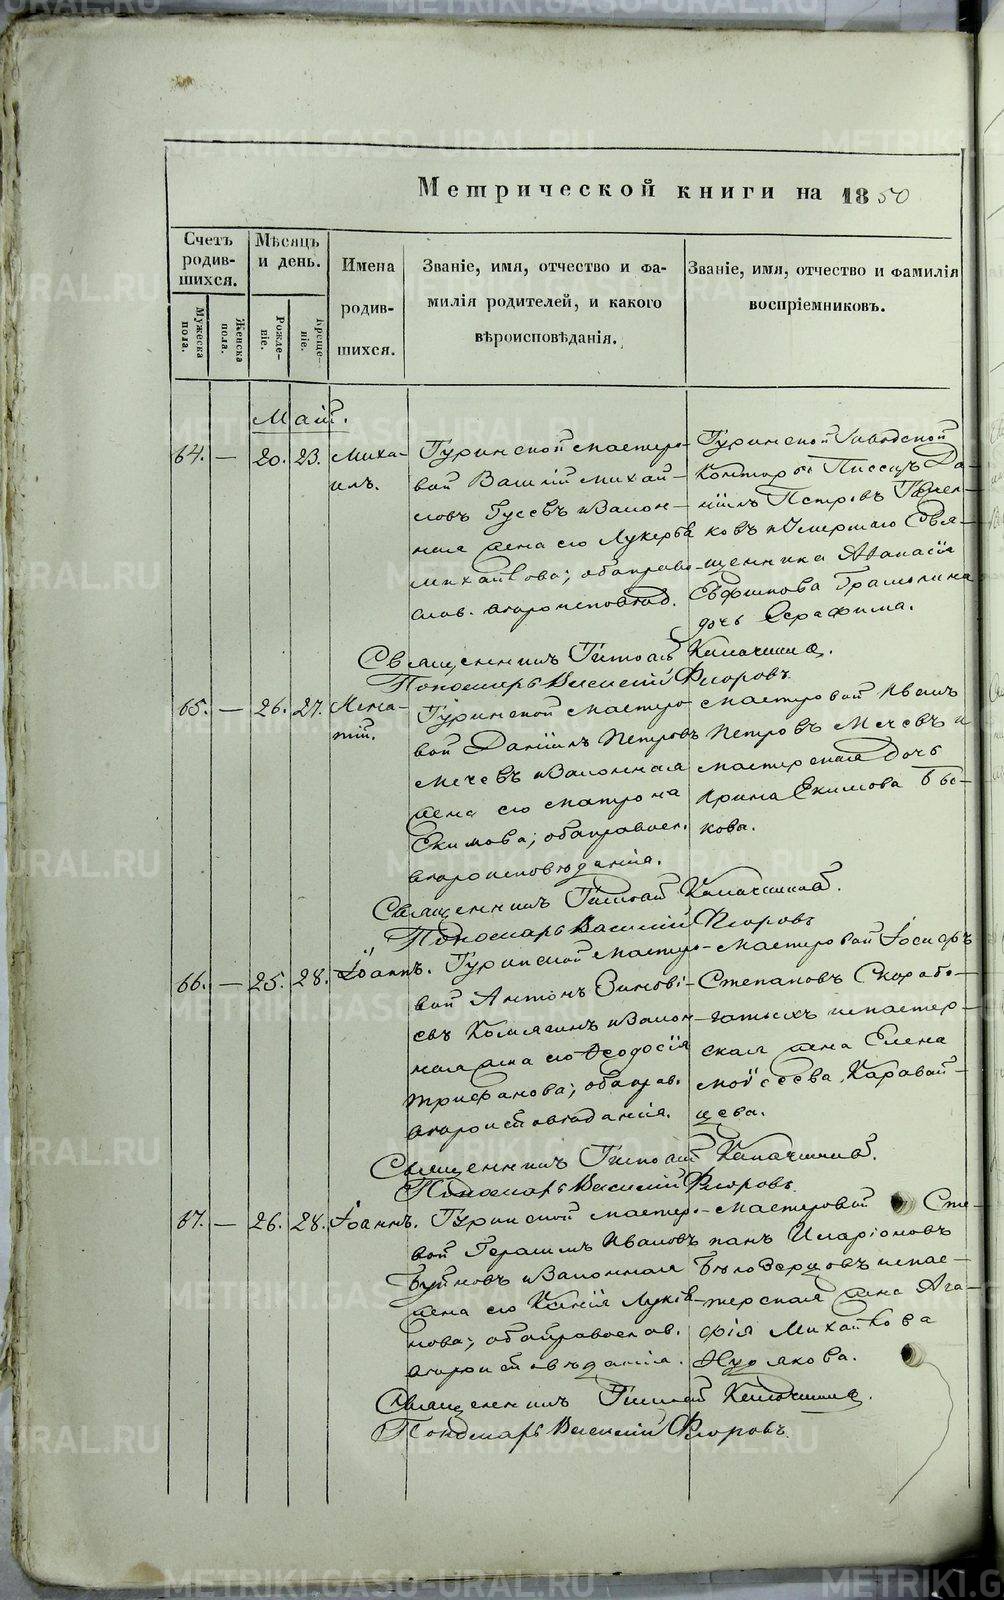 Метрической книги на 1850
Счетъ родив-шихся.
Мѣсяцъ и день.
Имена родив-шихся.
Званіе, имя, отчество и фа-
милія родителей, и какого
вѣроисповѣданія.
Званіе, имя, отчество и фамилія
воспріемниковъ.
Мужеска пола.
Женска пола.
Рожде-ніе.
Креще-ніе.
Маій.
64. — 20. 23. Миха-
илъ.
Туринской мастеро-
вой Василій Михай-
ловъ Гусевъ и закон-
ная жена его Лукерья
Михайлова; оба право-
слав. вѣроисповѣд.
Туринской Заводской
Конторы Писецъ Да-
ніилъ Петровъ
ковъ и Умершаго Свя-
щенника Аѳанасія
Евфимова Грамолина
дочь Серафима.
Священникъ
Пономарь Василій Флоровъ.
65. — 26. 27. Игна-
тій.
Туринской мастеро-
вой Даніилъ Петровъ
Мечевъ и законная
жена его Матрона
Екимова; оба правосл.
вѣроисповѣданія.
Мастеровой Иванъ
Петровъ Мечевъ и
мастерская дочь
Ирина Екимова Бы-
кова.
Священникъ
Пономарь Василій Флоровъ
66. — 25. 28. Іоаннъ.
Туринской мастеро-
вой Антонъ Зиновь-
евъ Комягинъ и закон-
ная жена его Ѳеодосія
Трифанова; оба прав.
вѣроисповѣданія.
Мастеровой Іосифъ
Степановъ Скоробо-
гатыхъ и мастер-
ская жена Елена
Моисеева Каравай-
цева.
Священникъ
Пономарь Василій Флоровъ.
67. — 26. 28. Іоаннъ.
Туринской мастеро-
вой Герасимъ Ивановъ
Бутновъ и законная
жена его Ксенія Лукія-
нова; оба православ.
вѣроисповѣданія.
Мастеровой Сте-
панъ Иларіоновъ
Бѣлозерцовъ и мас-
терская жена Ага-
фія Михайлова
Худякова.
Священникъ
Пономарь Василій Флоровъ.
METRIKI.GASO-URAL.RU